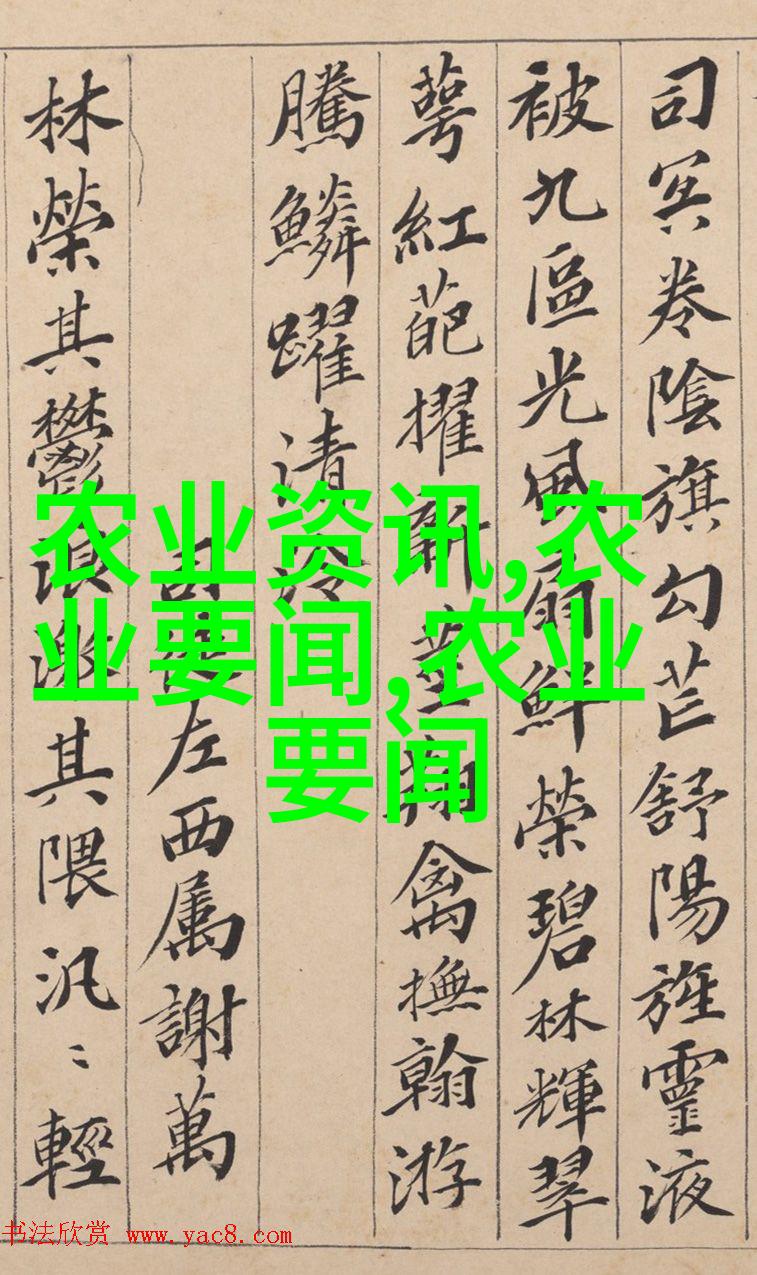 司冥卷陰旗勾芒舒陽旌靈液
被九區光風扇鮮榮碧林輝翠
萼紅葩擢新莖翔禽撫翰游
騰鱗躍清泠
司徒左西属謝萬
林榮其鬱浪激其隈汎〻輕
农业资讯,农
业要闻,农业
要闻
书法欣赏 www.yac8.com